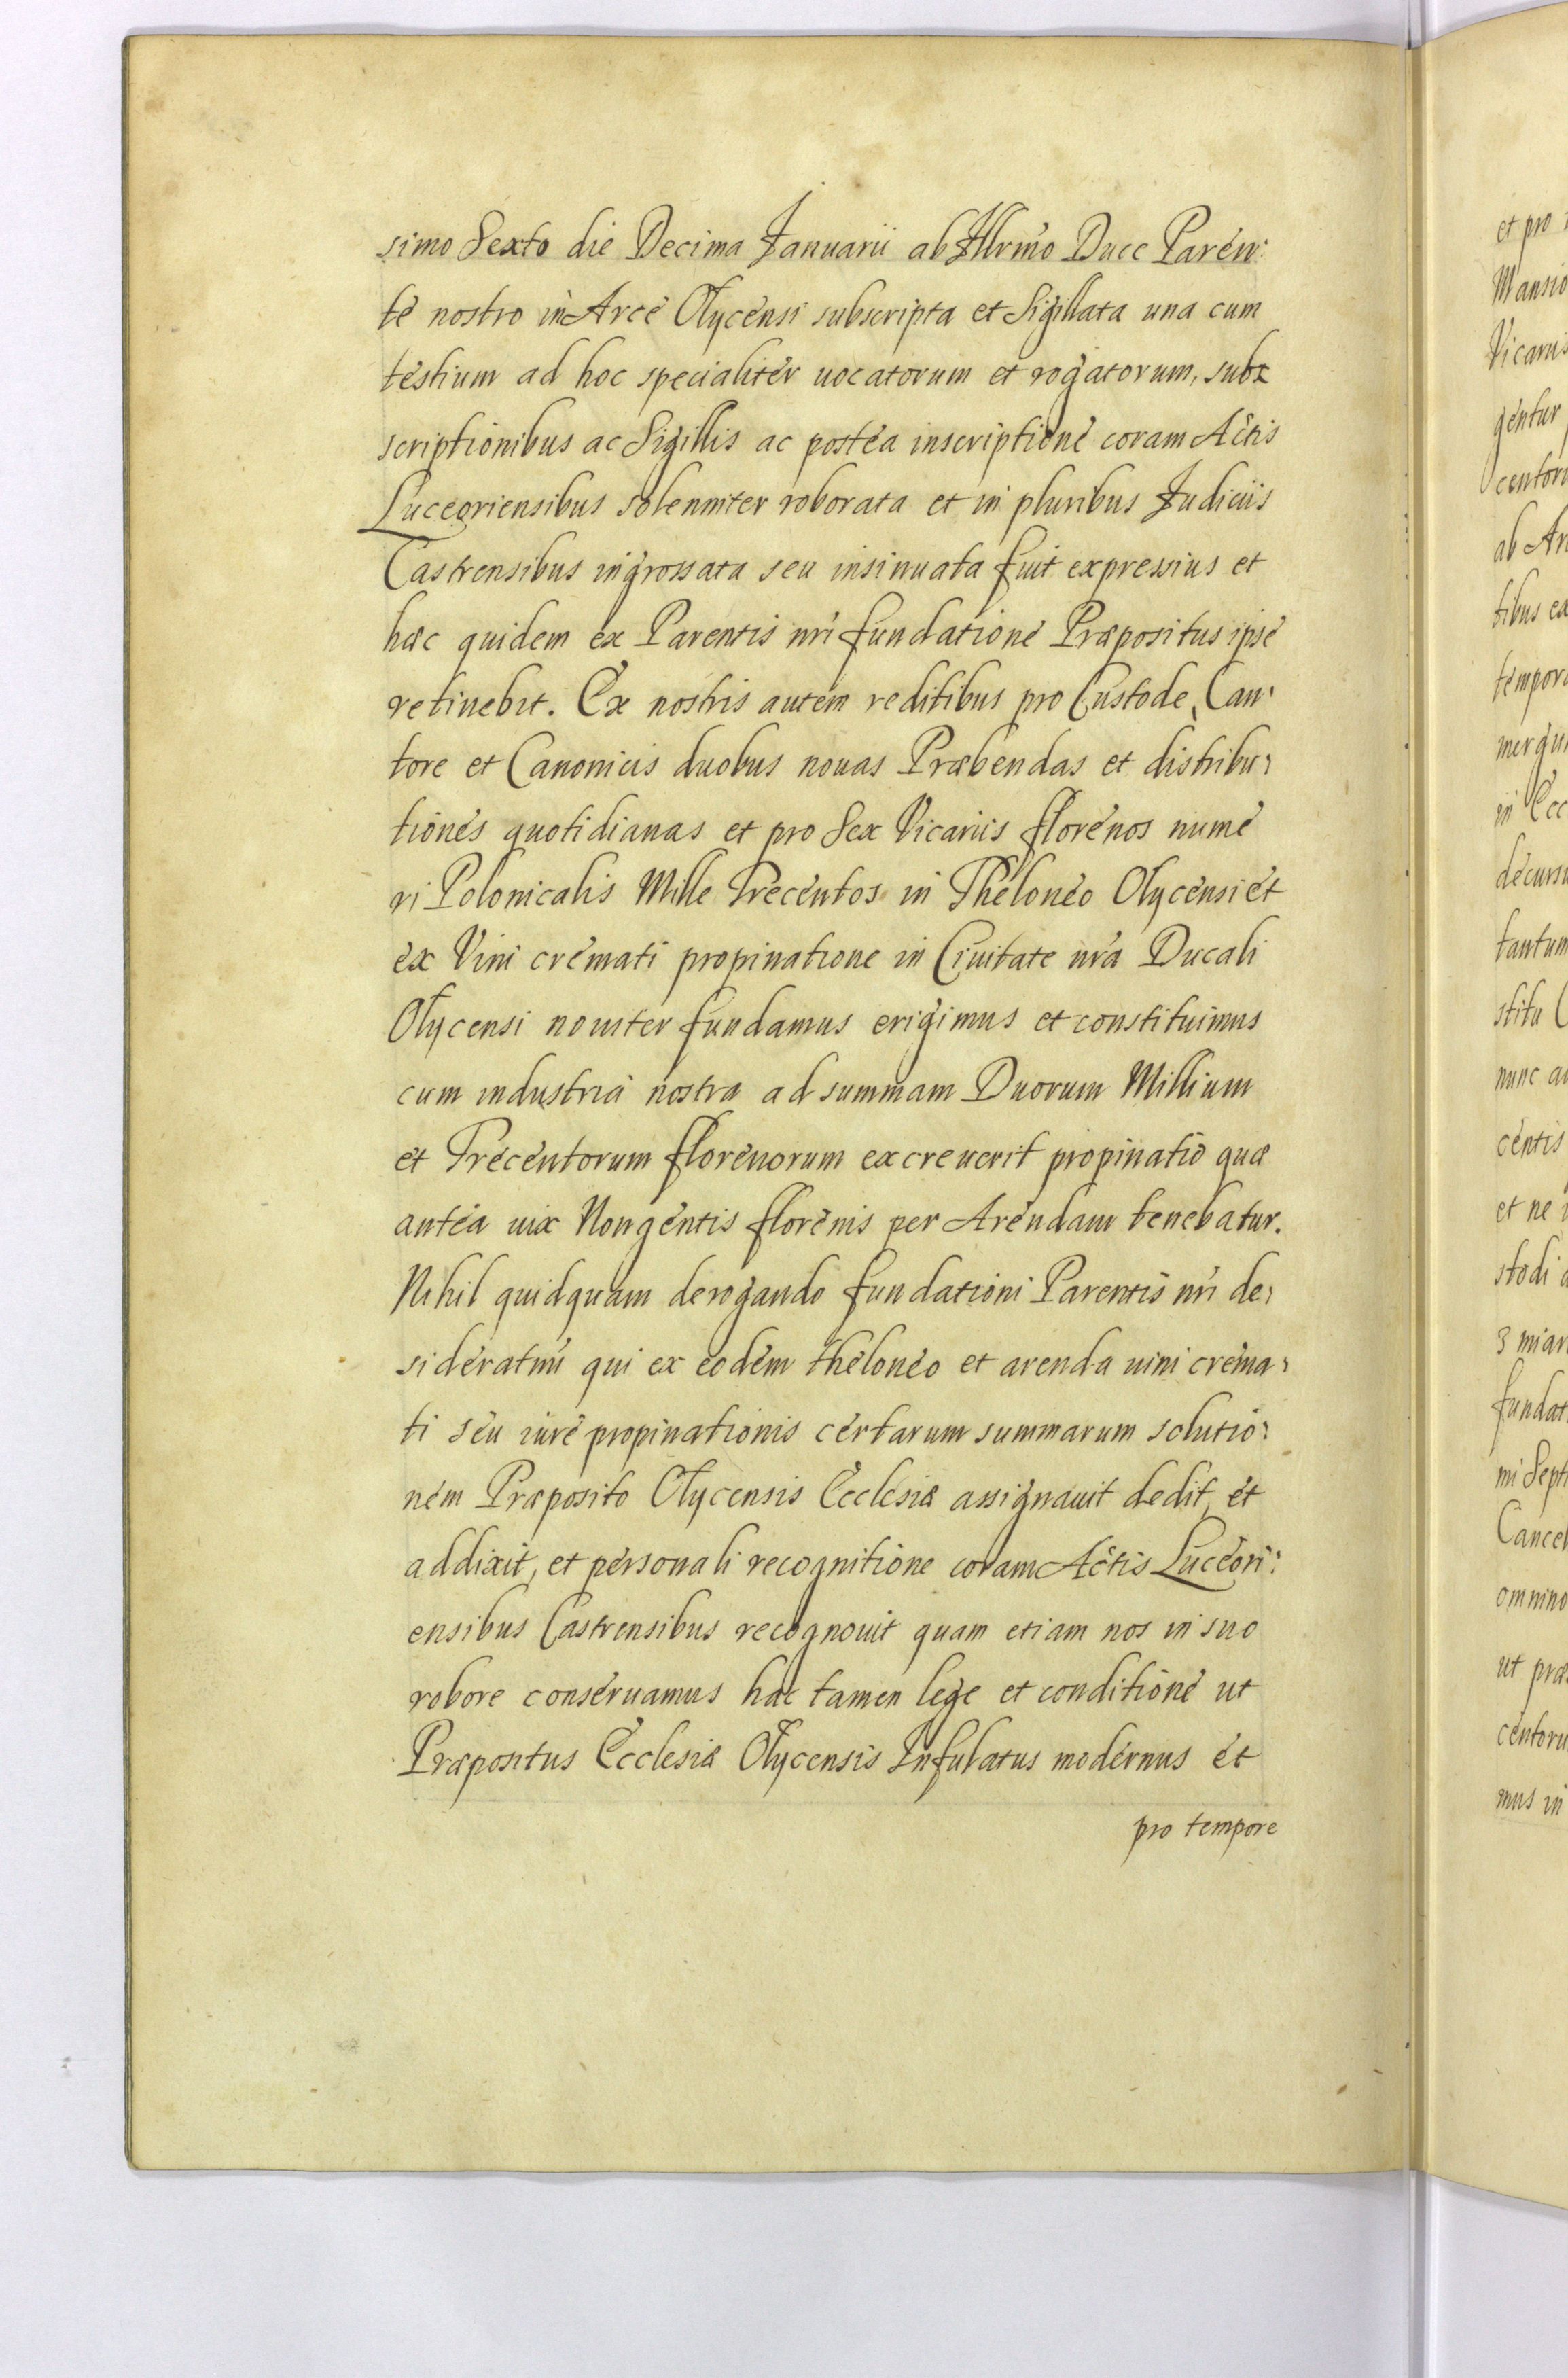 simo Sexto die Decima Januarii ab Illrmo Duce Paren:
te nostro in Arce Olycensi subscripta et Sigillata una cum
testium ad hoc specialiter uocatorum et rogatorum, sub
scriptionibus ac Sigillis ac postea inscriptione coram Actis
Luceoriensibus solenniter roborata et in pluribus Judiciis
Castrensibus ingrossata seu insinuata fuit expressius et
hæc quidem ex Parentis nri fundatione Præpositus ipse
retinebit. Ex nostris autem reditibus pro Custode, Can:
tore et Canonicis duobus nouas Præbendas et distribu:
tiones quotidianas et pro Sex Vicariis florenos nume
ri Polonicalis Mille Trecentos in Theloneo Olycensi et
ex Vini cremati propinatione in Ciuitate nra Ducali
Olycensi nouiter fundamus erigimus et constituimus
cum industria nostra ad summam Duorum Millium
et Trecentorum florenorum excreuerit propinatio quæ
antea uix Nongentis florenis per Arendam tenebatur.
Nihil quidquam derogando fundationi Parentis nri de:
sideratmi qui ex eodem theloneo et arenda uini crema:
ti seu iure propinationis certarum summarum solutio:
nem Præposito Olycensis Ecclesiæ assignauit dedit, et
addixit, et personali recognitione coram Actis Luceori:
ensibus Castrensibus recognouit quam etiam nos in suo
robore conseruamus hac tamen lege et conditione ut
Præpositus Ecclesiæ Olycensis Infulatus modernus et
pro tempore
et pro
Mansio
Vicarus
gentur
centor
ab Ar
tibus ea
tempor
in Ecc
decurs
tantum
stitu
nunc
centis
et ne
stodi
fundat
mi Sept
Cancel
omnino
ut præ
centoru
mus in